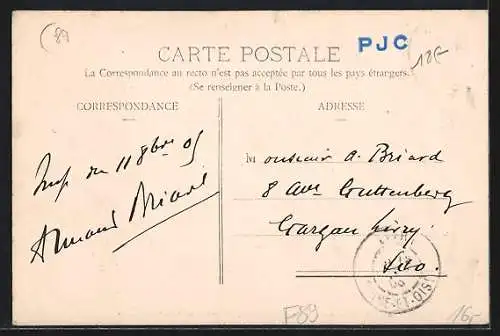 (89
PJC
18E
CARTE POSTALE
La Correspondance au recto n'est pas acceptée par tous les pays étrangers.
(Se renseigner à la Poste.)
CORRESPONDANCE
ADRESSE
du 11 8bre 05
Armand Briard
Monsieur A. Briard
8 Ave Guttenberg
Gargan Livry
S&O.
ET-OISE
F89
16